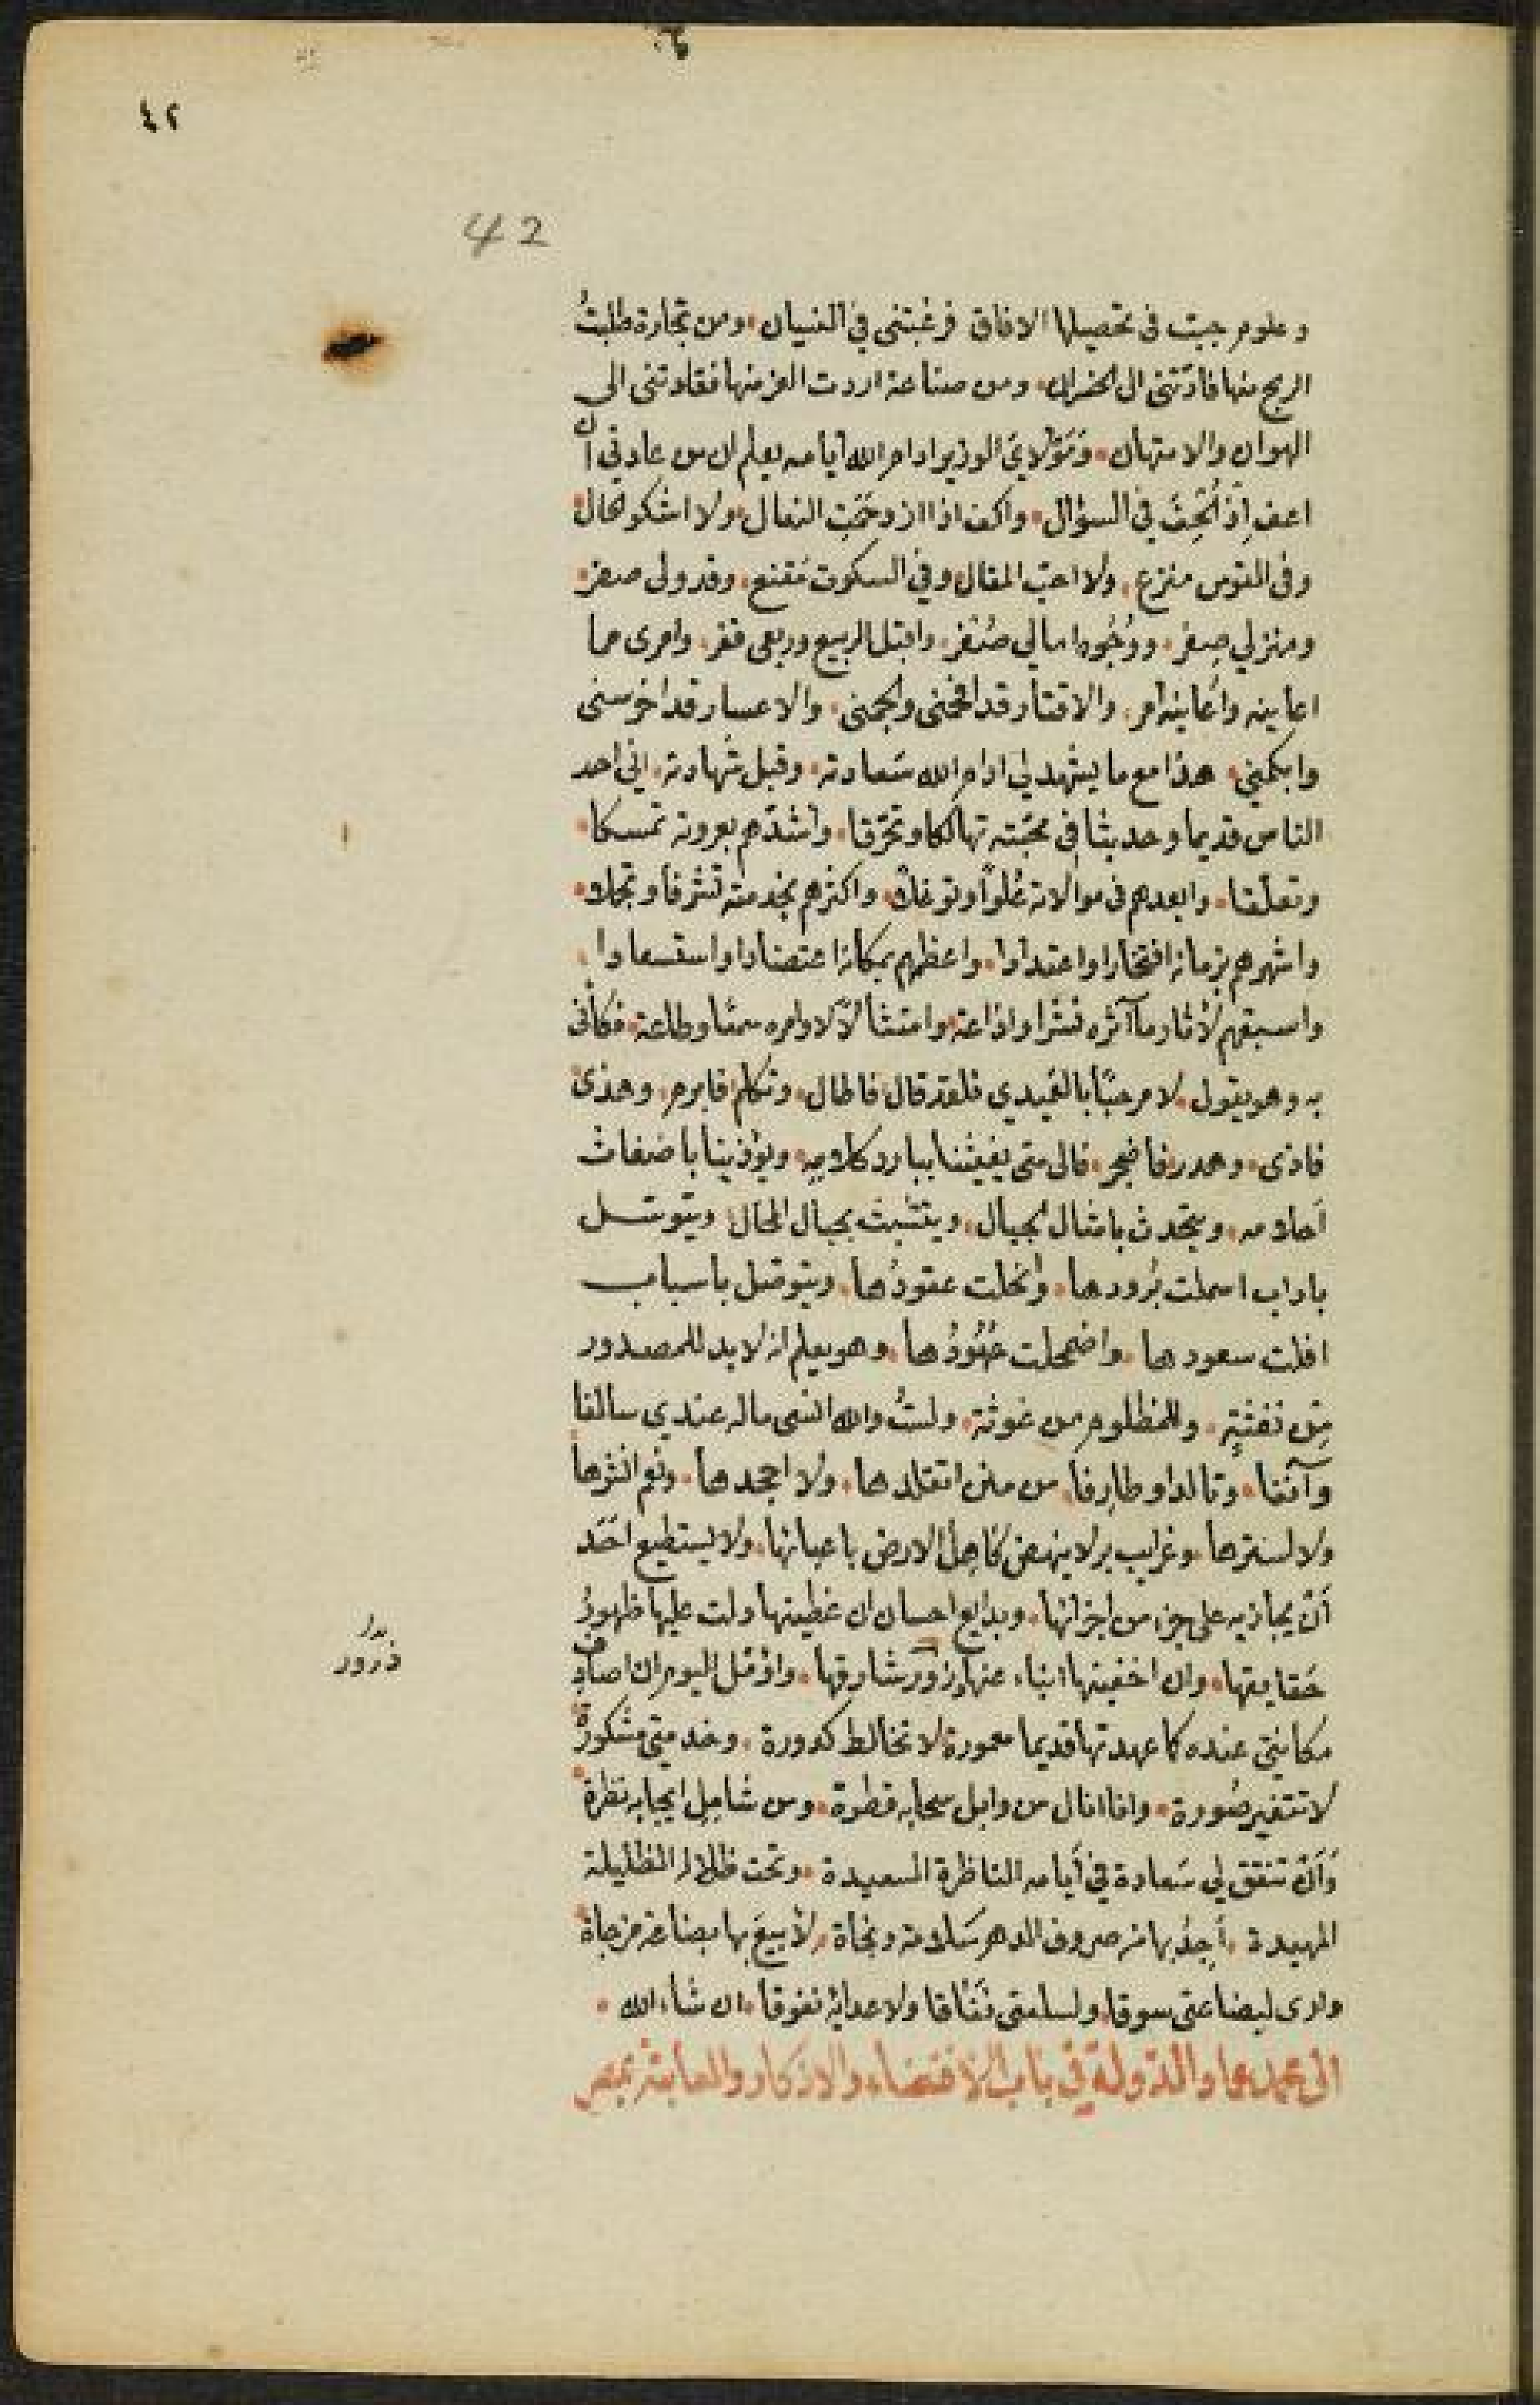 ٤٢
42
وعلوم جبت فى تحصيلها الافاق فرغبتنى في النسيان، ومن تجارة طلبتُ
الربح منها فادّتنى الى الخسران، ومن صناعة اردت العز منها فقادتنى الى
الهوان والامتهان، ومَوْلايَ الوزير ادام الله أيامه يعلم ان من عادتي أن
اعف اذ في السؤال، واكف اذا ازدحمَتِ النعال، ولا اشكو الحال
وفى القوس منزع، ولا احبّ المقال وفي السكوت مَقنع، وقد ولى صفر
ومنزلي صِفر، ووُجُوه امالي صُفر، واقبل الربيع وربعى قفر، وامرى مما
اعاينه واُعانيه امر، والاقتار قد افحمنى والجمنى، والاعسار قد اخرسنى
وابكمنى، هذا مع ما يشهد لي ادام الله سَعادته، وقبل شهادته، اني احد
الناس قديما وحديثا فى محبّته تهالكا وتحرّقا، واشدّهم بعروته تمسكا
وتعلّقا، وابعدهم فى موالاته غُلوّاً وتوغلا، واكثرهم بخدمته تشرفا وتجملا،
واشهرهم بزمانه افتخارا واعتدادا، واعظمهم بمكانه اعتضادا واستسعادا،
واسبقهم لآثار مآثره نشرا واذاعة، وامتثالاً لاوامره سمعًا وطاعة، فكأنى
به وهو يقول، لا مرحبًا بالعَميدي فلقد قال فاطال، وتكلم فابرم، وهذى
فاذى، وهدر فاضجر، فالى متى يغيثنا ببارد كلامه، ويؤذينا باضغاث
أحلامه، ويتحدث بامثال الجبال، ويتشبث بحبال المحال، ويتوسّل
باداب اسملت بُرودها، وانحلت عقودُها، ويتوصّل باسباب
افلت سعودها، واضمحلت عُهُودُها، وهو يعلم انه لا بد للمصدور
مِن نفثةٍ، وللمظلوم من غوثة، ولستُ والله انسى ماله عندي سالفا
وآنفا، وتالدا وطارفا، من منن اتقلدها، ولا اجحدها، ونعم انشرها
ولا استرها، وغرايب بر لا ينهض كاهل الارض باعبائها، ولا يستطيع احَد
أن يجازيه على جزء من اجزائها، وبدايع احسان ان غطيتها دلت عليها ظهورُ
حَقايقها، وان اخفيتها انباء عنها ذرور شارقها، واؤمّل اليوم ان اصادف
مكانتى عنده كما عهدتها قديما معمورة لا تخالط كدورة، وخدمتى مشكورة
لا تتغير صُورة، وانا انال من وابل سحابه قطرة، ومن شامل ايجابه نظرة
وَأن تتفق لي سَعادة في أيامه الناظرة السعيدة، وتحت ظلاله الظليلة
المهيدة، أجدُ بها من صروف الدهر سَلامة ونجاة، لأبيعَ بها بضاعة مزجاة،
وارى لبضاعتى سوقا، ولسلعتى نَفَاقا ولاعدائه نفوقا، ان شاء الله،
الى عميد عماد الدولة في باب الاقتضاء والاذكار والمعاتبة بمصر
بدر
ذرور